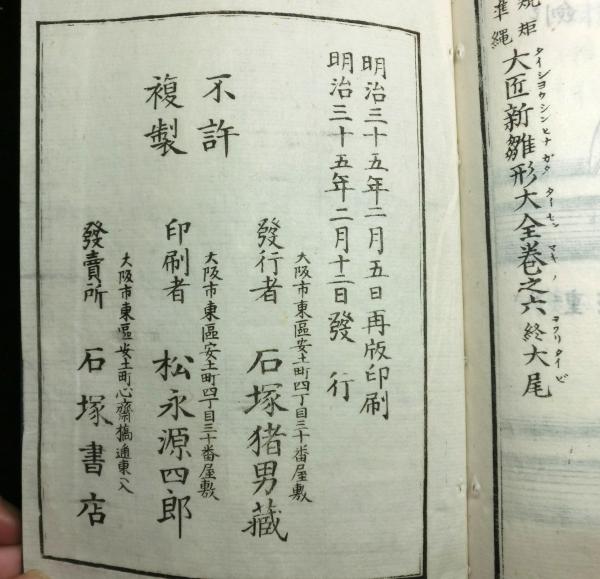 規矩
準縄
大匠新雛形大全巻之六終大尾
タイシヨウシンヒナガタタイセンマキノヲワリタイビ
明治三十五年二月五日再版印刷
明治三十五年二月十二日發行
不許
複製
大阪市東區安土町四丁目三十番屋敷
發行者 石塚猪男藏
大阪市東區安土町四丁目三十番屋敷
印刷者 松永源四郎
大阪市東區安土町心齋橋通東入
發賣所 石塚書店